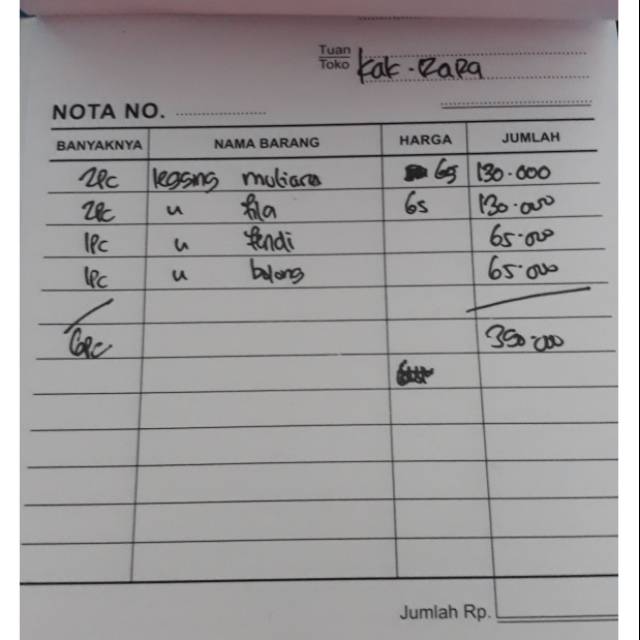 Tuan
Toko Kak-Rara
NOTA NO.
BANYAKNYA NAMA BARANG HARGA JUMLAH
2Pc legging mutiara 65 130.000
2Pc u fila 65 130.000
1Pc u fendi 65.000
1Pc u balong 65.000
6Pc 390.000
Jumlah Rp.